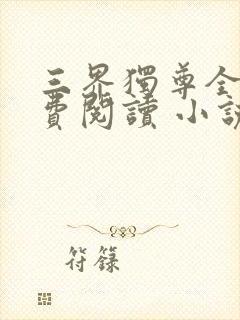 三界獨尊全
費閱讀 小說
符籙